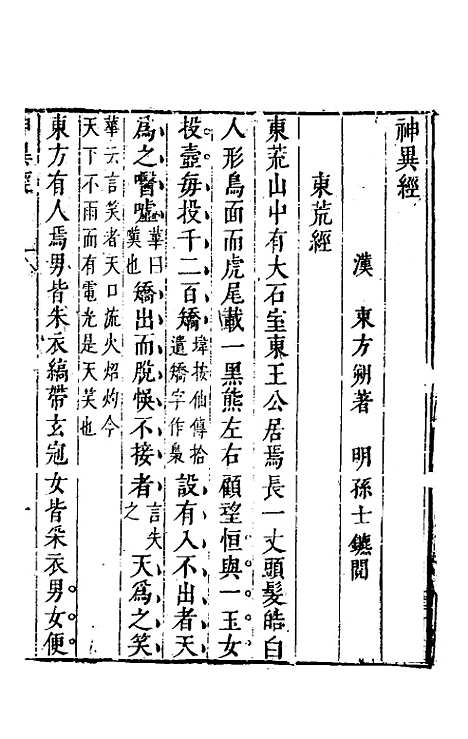 神異經
漢 東方朔著 明孫士鑣閱
東荒經
東荒山中有大石室東王公居焉長一丈頭髮皓白
人形鳥面而虎尾載一黑熊左右顧望恒與一玉女
投壺每投千二百矯瑋按仙傳拾遺矯字作梟設有入不出者天
為之𠿝噓華曰嘆也矯出而脫悞不接者言失之天為之笑
華云言笑者天口流火炤灼今
天下不雨而有電光是天笑也
東方有人焉男皆朱衣縞帶玄冠女皆采衣男女便
神異經 一